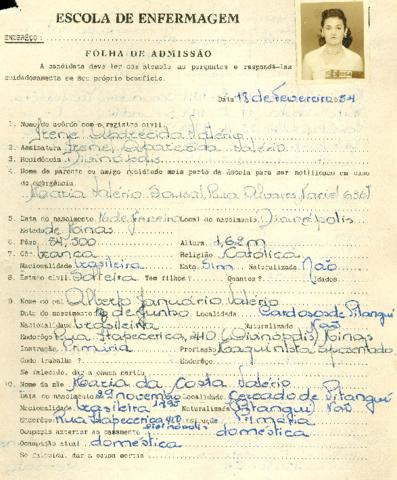 ESCOLA DE ENFERMAGEM
ENDERÊÇO:
FOLHA DE ADMISSÃO
A candidata deve ler com atenção as perguntas e respondê-las
cuidadosamente em seu próprio benefício.
Data 18 de Fevereiro 54
1. Nome de acôrdo com o registro civil
Irene Aparecida Valério
2. Assinatura Irene Aparecida Valério
3. Residência Divinópolis
4. Nome de parente ou amigo residindo mais perto da Escola para ser notificado em caso
de emergência
Maria Valério Sousa, Rua Álvares Maciel 656
5. Data do nascimento Local do nascimento Divinópolis
Estado de Minas
6. Pêso: 54,500 Altura 1,62 m
7. Côr branca Religião Católica
Nacionalidade brasileira Nata Sim Naturalizada Não
8. Estado civil Solteira Tem filhos? Quantos? Idades
9. Nome do pai Alberto Januário Valério
Data do nascimento de Junho Localidade Cardosos de Pitangui
Nacionalidade brasileira Naturalizado Não
Endereço Rua Itapecerica, 410 (Divinópolis) Minas
Instrução Primária Profissão Maquinista aposentado
Onde trabalha? Enderêço:
Se falecido, dar a causa mortis
10. Nome da mãe Maria da Costa Valério
Data do nascimento 29 novembro 1895 Localidade Cercado de Pitangui
Nacionalidade brasileira Naturalizada (Pitangui) Não
Enderêço Rua Itapecerica 410 Divinópolis Instrução Primária
Ocupação anterior ao casamento doméstica
Ocupação atual doméstica
Se falecida, dar a causa mortis